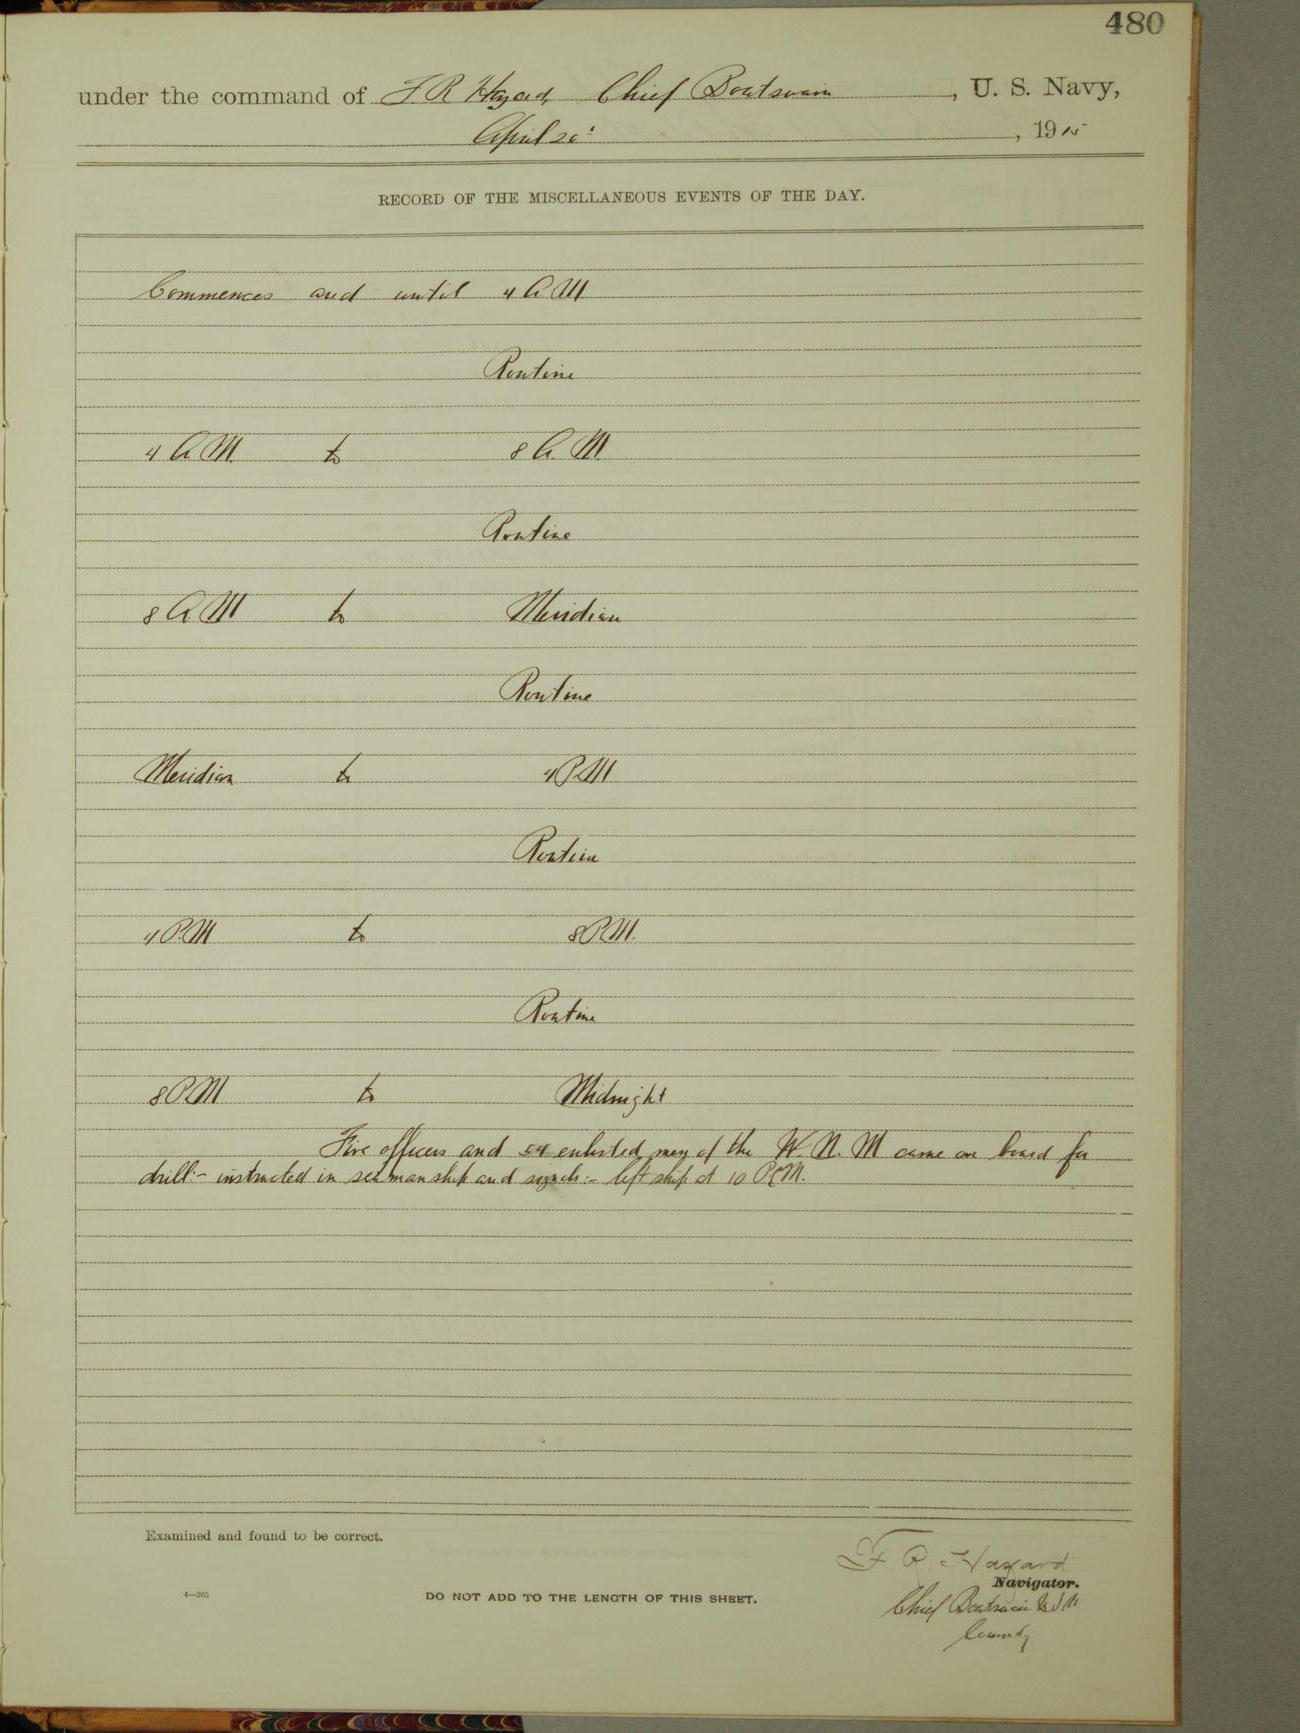 480
under the command of F R Hazard, Chief Boatswain, U. S. Navy,
April 20, 1915
RECORD OF THE MISCELLANEOUS EVENTS OF THE DAY.
Commences and until 4 A M
Routine
4 A.M. to 8 A.M
Routine
8 A.M to Meridian
Routine
Meridian to 4 P.M
Routine
4 P.M to 8 P.M.
Routine
8 P.M to Midnight
Five officers and 54 enlisted men of the W. N. M came on board for
drill:- instructed in seamanship and signals:- left ship at 10 P.M.
Examined and found to be correct.
F. R. Hazard
Navigator.
4—265
DO NOT ADD TO THE LENGTH OF THIS SHEET.
Chief Boatswain U S N
Comdg